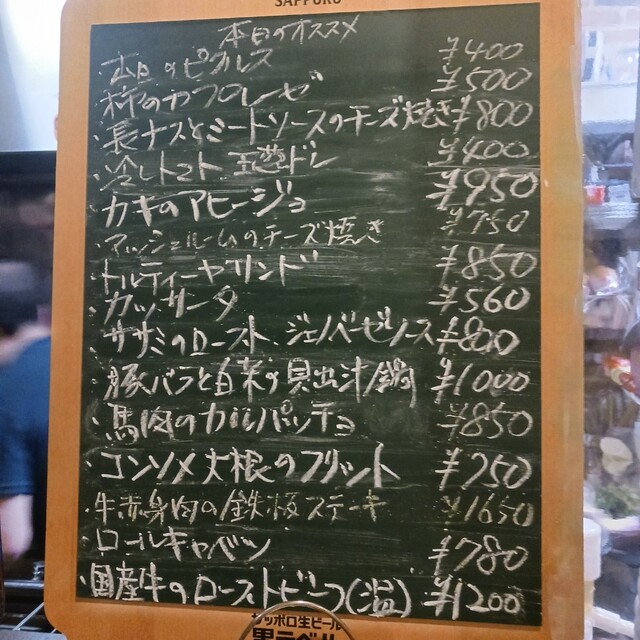 SAPPORO
本日のオススメ
・本日のピクルス ¥400
・柿のカプレーゼ ¥500
・長ナスとミートソースのチーズ焼き ¥800
・冷しトマト 玉葱ドレ ¥400
・カキのアヒージョ ¥950
・マッシュルームのチーズ焼き ¥750
・トルティーヤサンド ¥850
・カッサータ ¥560
・ササミのロースト、ジェノベーゼソース ¥800
・豚バラと白菜の貝出汁鍋 ¥1000
・馬肉のカルパッチョ ¥850
・コンソメ大根のフリット ¥750
・牛赤身肉の鉄板ステーキ ¥1650
・ロールキャベツ ¥780
・国産牛のローストビーフ(温) ¥1200
サッポロ生ビール
黒ラベル